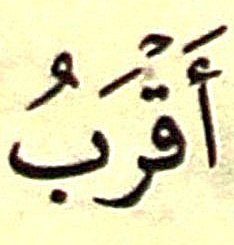 أَقْرَبُ